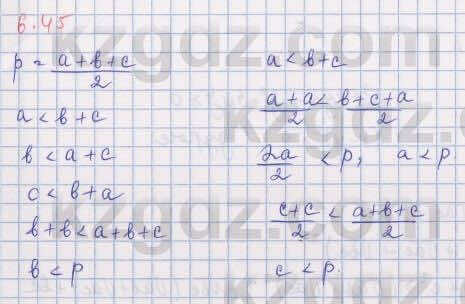 6.45
p = (a+b+c)/2
a < b+c
b < a+c
c < b+a
b+b < a+b+c
b < p
a < b+c
(a+a)/2 < (b+c+a)/2
2a/2 < p, a < p
(c+c)/2 < (a+b+c)/2
c < p.
kzgdz.com
kzgdz.com
kzgdz.com